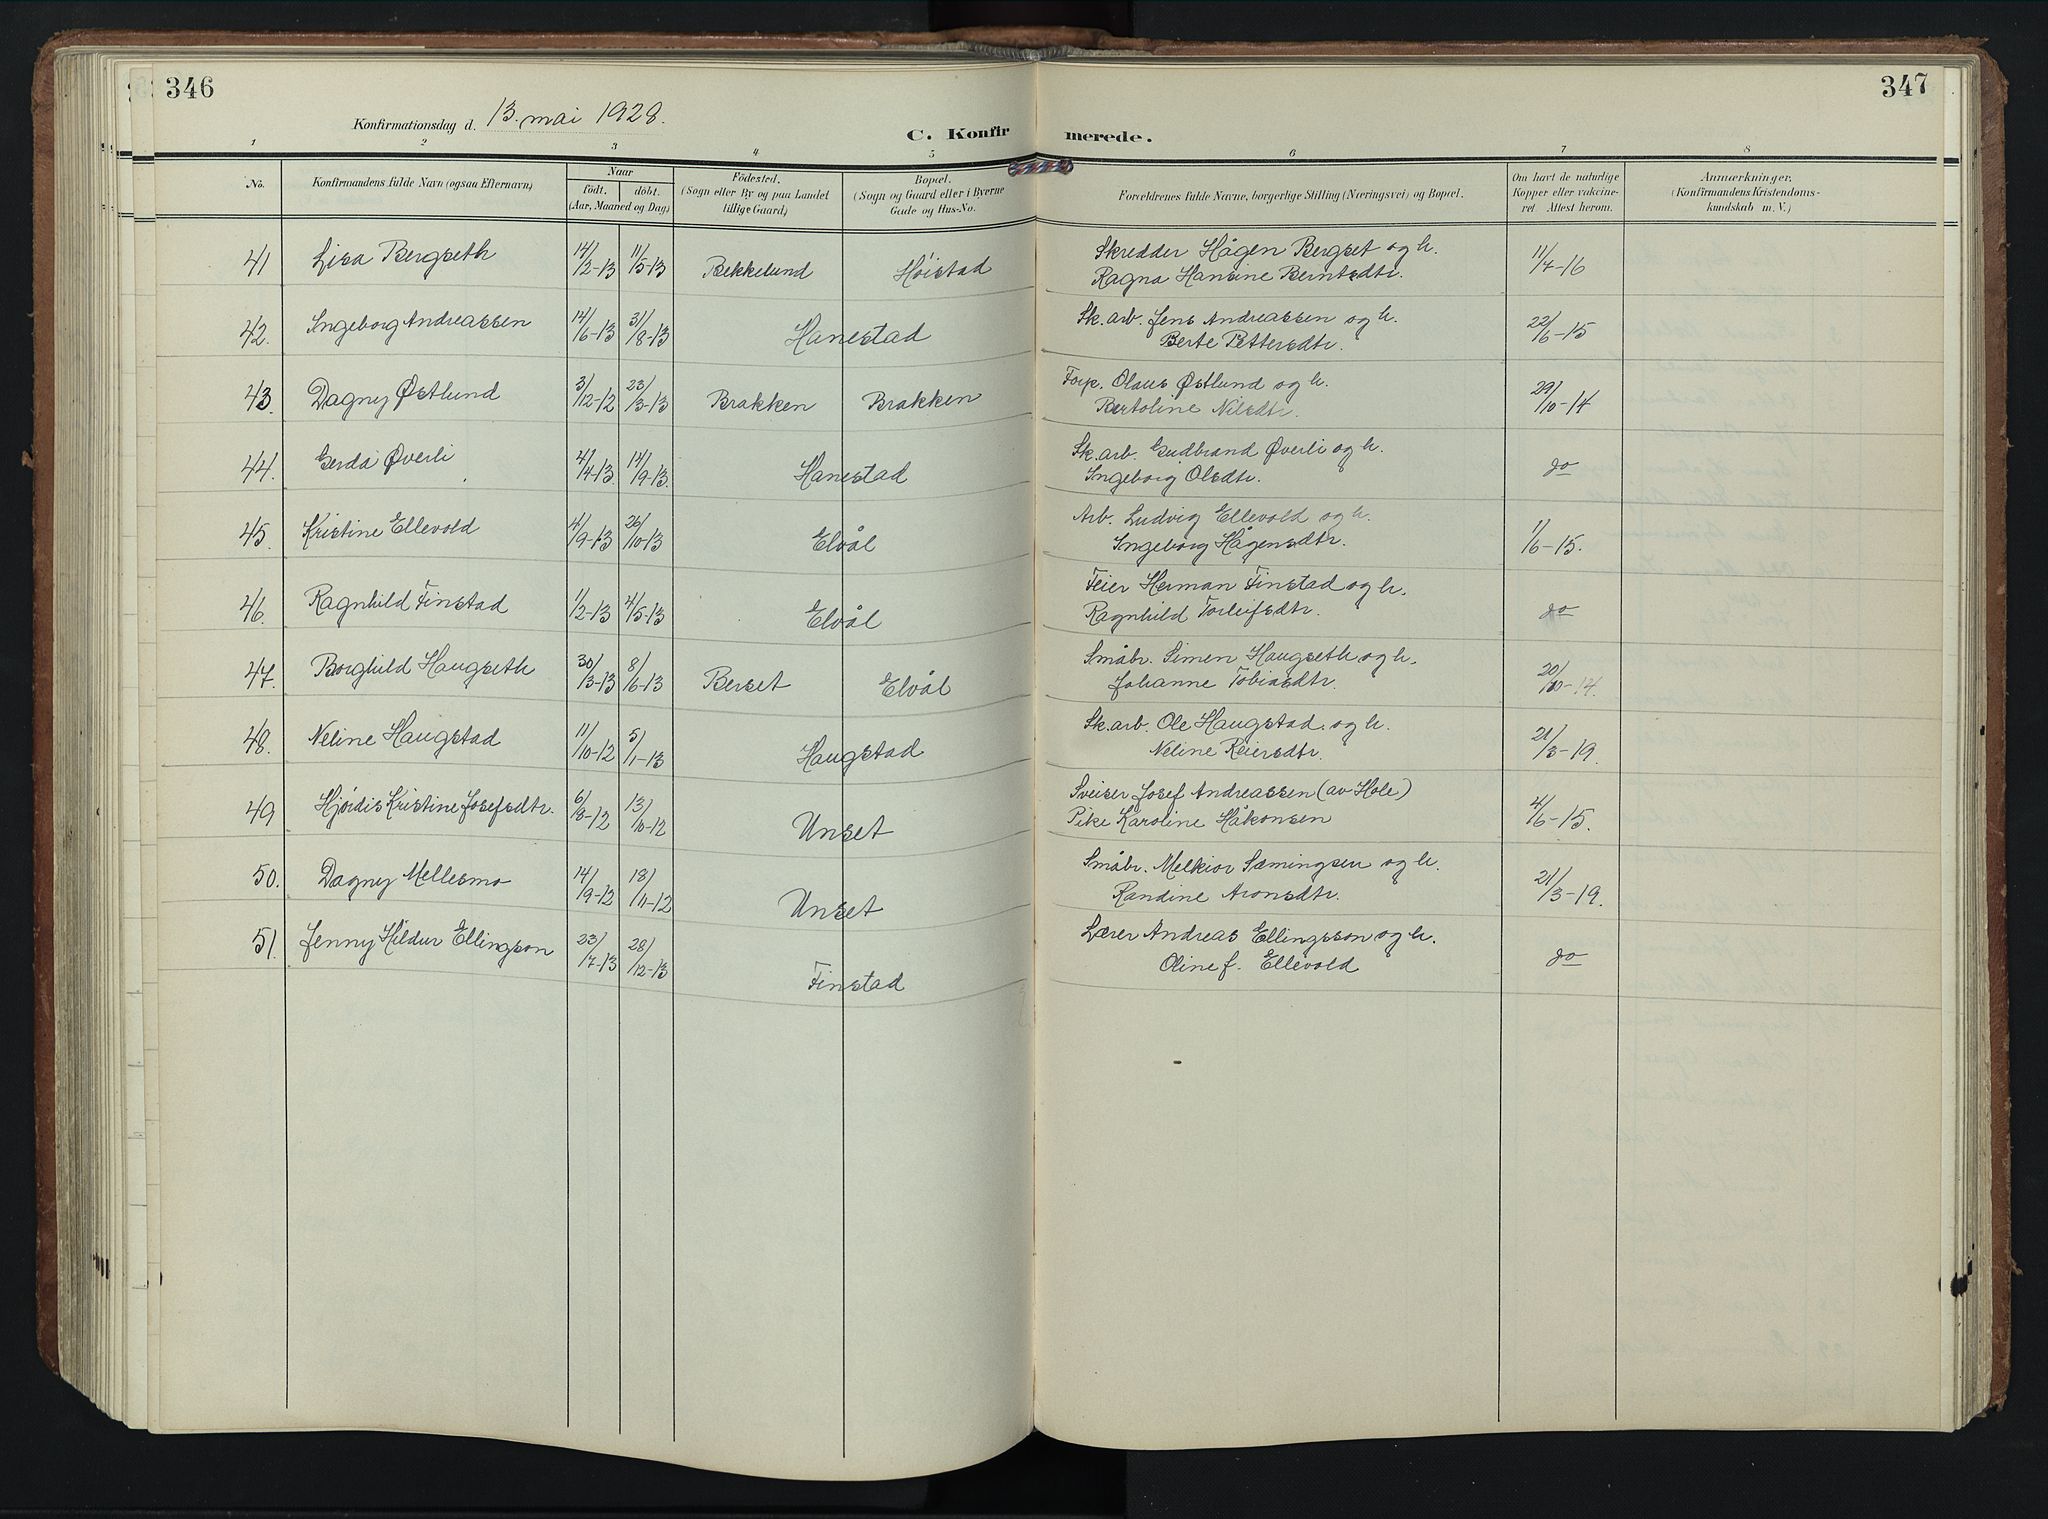 346
347
Konfirmationsdag d. 13. mai 1928.
C. Konfir merede.
1 2 3 4 5 6 7 8
No. Konfirmandens fulde Navn (ogsaa Efternavn) Naar födt. döbt. (Aar, Maaned og Dag.) Födested. (Sogn eller By og paa Landet tillige Gaard) Bopæl. (Sogn og Gaard eller i Byerne Gade og Hus-No. Forældrenes fulde Navne, borgerlige Stilling (Næringsvei) og Bopæl. Om havt de naturlige Kopper eller vakcineret. Attest herom. Anmærkninger. (Konfirmandens Kristendomskundskab m. V.)
41 Lisa Bergseth 14/2-13 11/5-13 Bekkelund Høistad Skredder Hågen Bergset og h. 11/4-16
Ragna Hansine Berntsdtr.
42. Ingeborg Andreassen 14/6-13 31/8-13 Hanestad Sk. arb. Jens Andreassen og h. 22/6-15
Berte Pettersdtr.
43. Dagny Østlund 3/12-12 23/3-13 Brakken Brakken Forp. Olaus Østlund og h. 29/10-14
Bertoline Nilsdtr.
44. Gerda Øverli 4/4-13. 14/9-13. Hanestad Sk. arb. Gudbrand Øverli og h. do
Ingeborg Olsdtr.
45. Kristine Ellevold 4/9-13 26/10-13 Elvål Arb. Ludvig Ellevold og h. 1/6-15.
Ingeborg Hågensdtr.
46. Ragnhild Finstad 1/2-13 4/5-13 Elvål Feier Herman Finstad og h. do
Ragnhild Torleifsdtr.
47. Borghild Haugseth 30/3-13 8/6-13 Berset Elvål Småbr. Simen Haugseth og h. 20/10-14.
Johanne Tobiasdtr.
48. Neline Haugstad 11/10-12 5/1-13 Haugstad Sk. arb. Ole Haugstad. og h. 21/3-19.
Neline Reiersdtr.
49 Hjørdis Kristine Josefsdtr. 6/8-12 13/10-12 Unset Sveiser Josef Andreassen (av Hole) 4/6-15.
Pike Karoline Håkonsen
50. Dagny Mellesmo 14/9-12 18/11-12 Unset Småbr. Melkior Sæmingsen og h. 21/3-19.
Randine Aronsdtr.
51. Jenny Hildur Ellingson 23/7-13 28/12-13 Finstad Lærer Andreas Ellingsson og h. do
Oline f. Ellevold